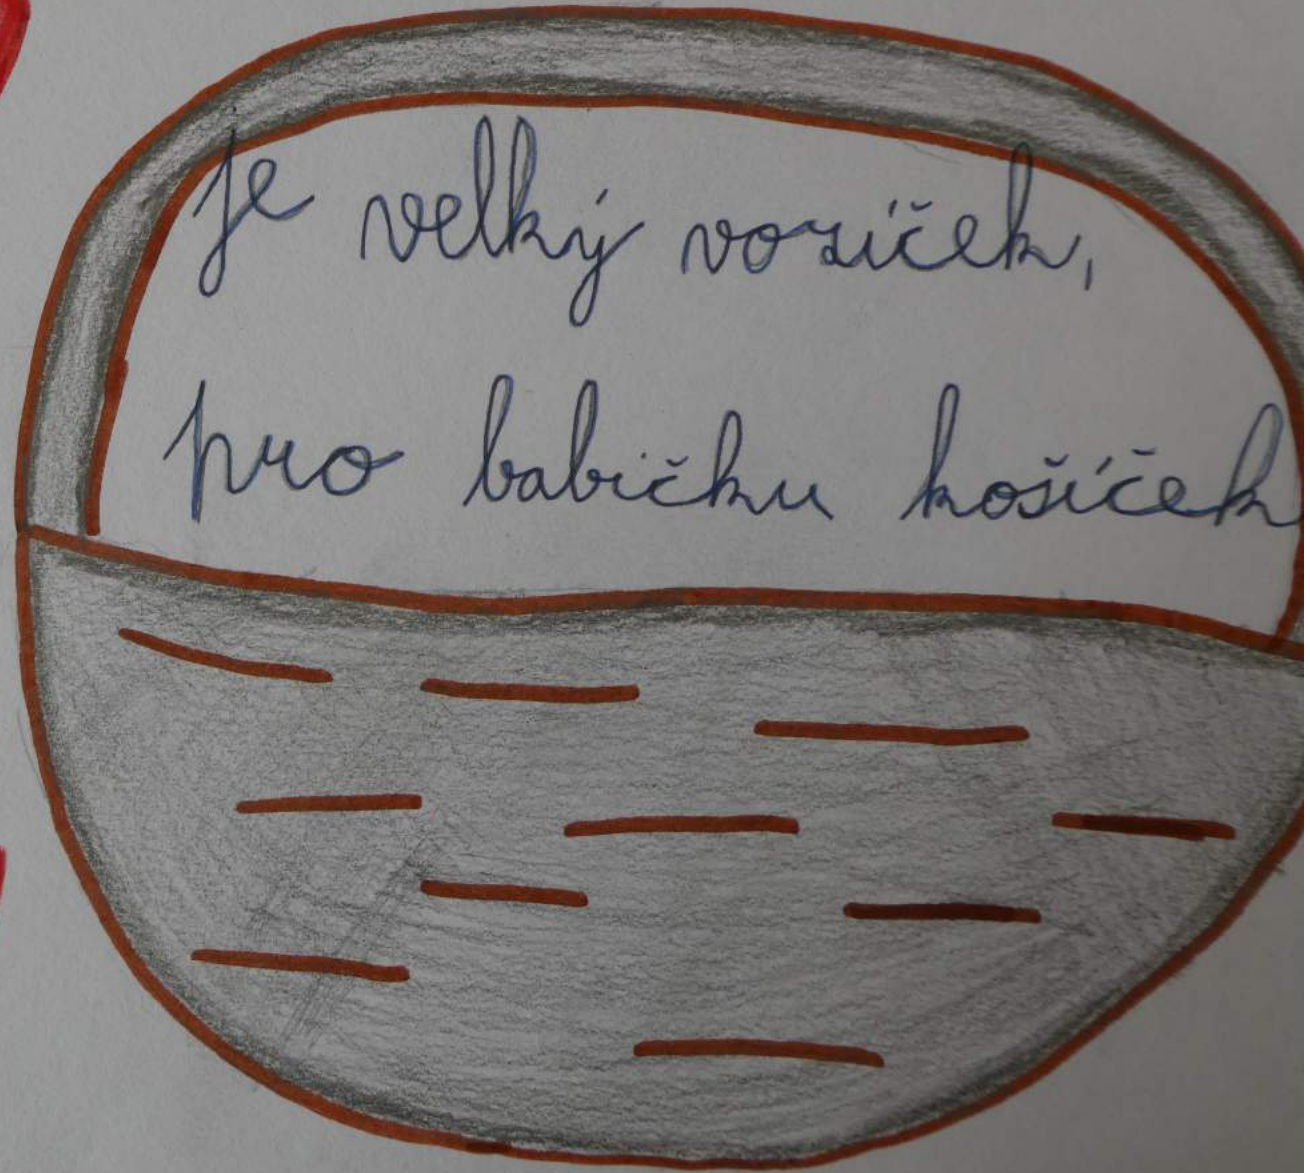 je velký vozíček,
pro babičku košíček